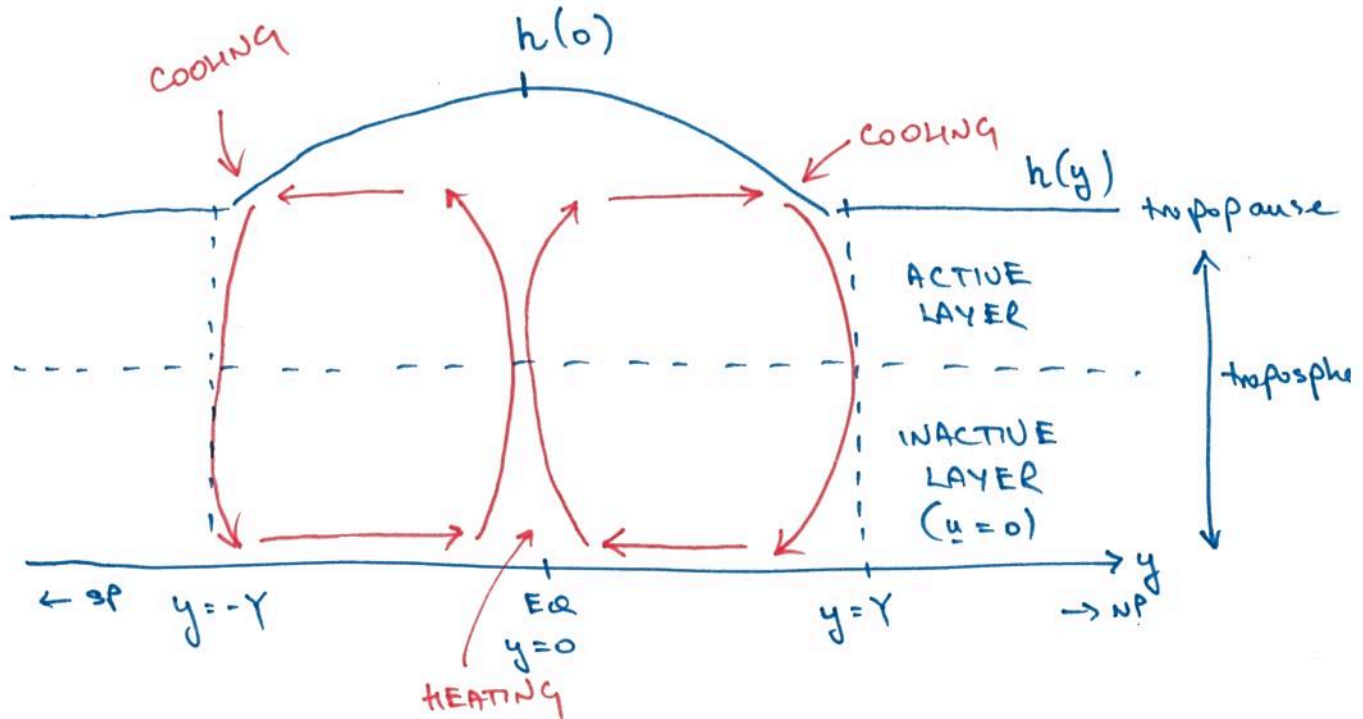 h(0)
COOLING
COOLING
h(y)
tropopause
ACTIVE
LAYER
troposphe
INACTIVE
LAYER
(u = 0)
y
← SP
y = -Y
EQ
y = 0
y = Y
→ NP
HEATING